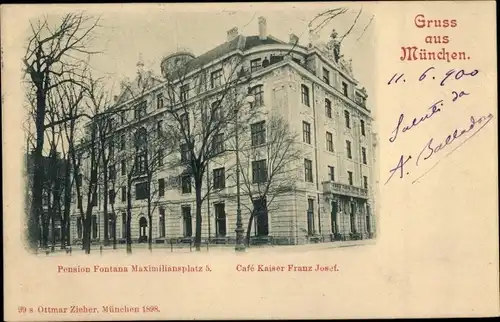 Gruss
aus
München.
11. 6. 900
Saluti da
A. Balladori
Pension Fontana Maximiliansplatz 5. Café Kaiser Franz Josef.
99 s Ottmar Zieher, München 1898.